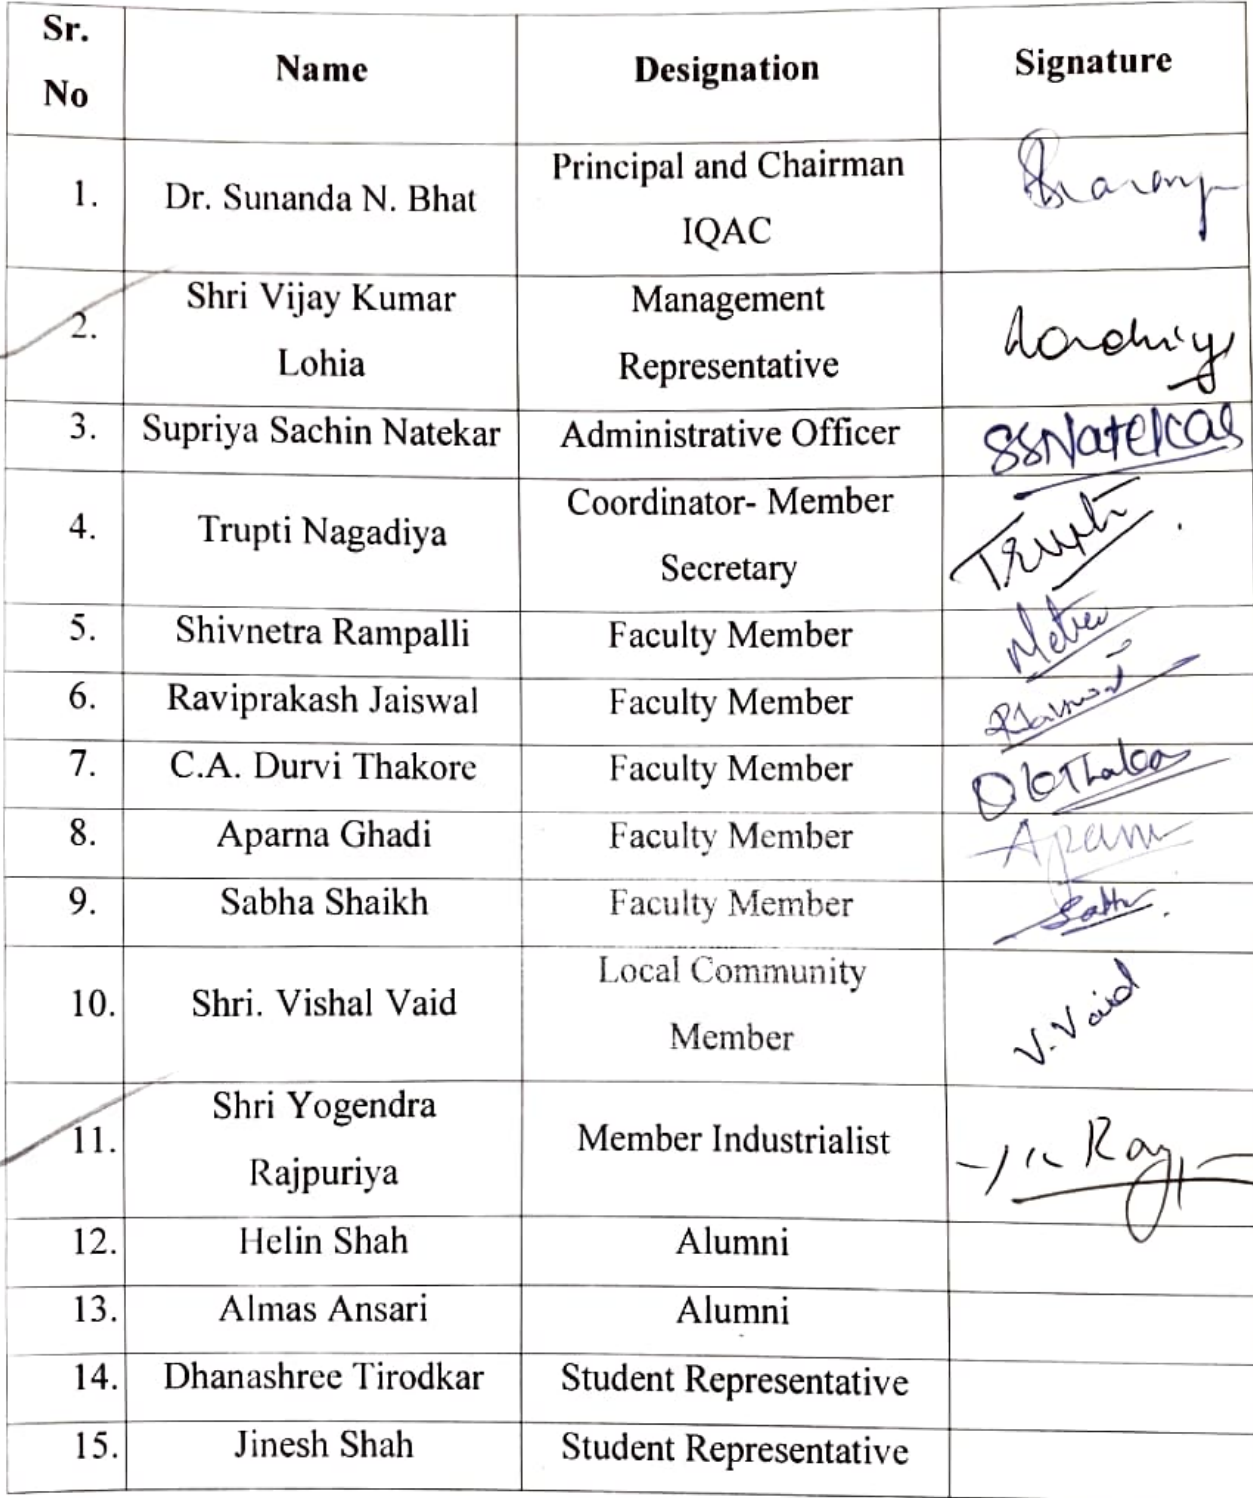 Sr.
No
Name
Designation
Signature
1.
Dr. Sunanda N. Bhat
Principal and Chairman
IQAC
2.
Shri Vijay Kumar
Lohia
Management
Representative
3.
Supriya Sachin Natekar
Administrative Officer
SSNatekar
4.
Trupti Nagadiya
Coordinator- Member
Secretary
Trupti
5.
Shivnetra Rampalli
Faculty Member
6.
Raviprakash Jaiswal
Faculty Member
7.
C.A. Durvi Thakore
Faculty Member
8.
Aparna Ghadi
Faculty Member
9.
Sabha Shaikh
Faculty Member
10.
Shri. Vishal Vaid
Local Community
Member
V.Vaid
11.
Shri Yogendra
Rajpuriya
Member Industrialist
12.
Helin Shah
Alumni
13.
Almas Ansari
Alumni
14.
Dhanashree Tirodkar
Student Representative
15.
Jinesh Shah
Student Representative